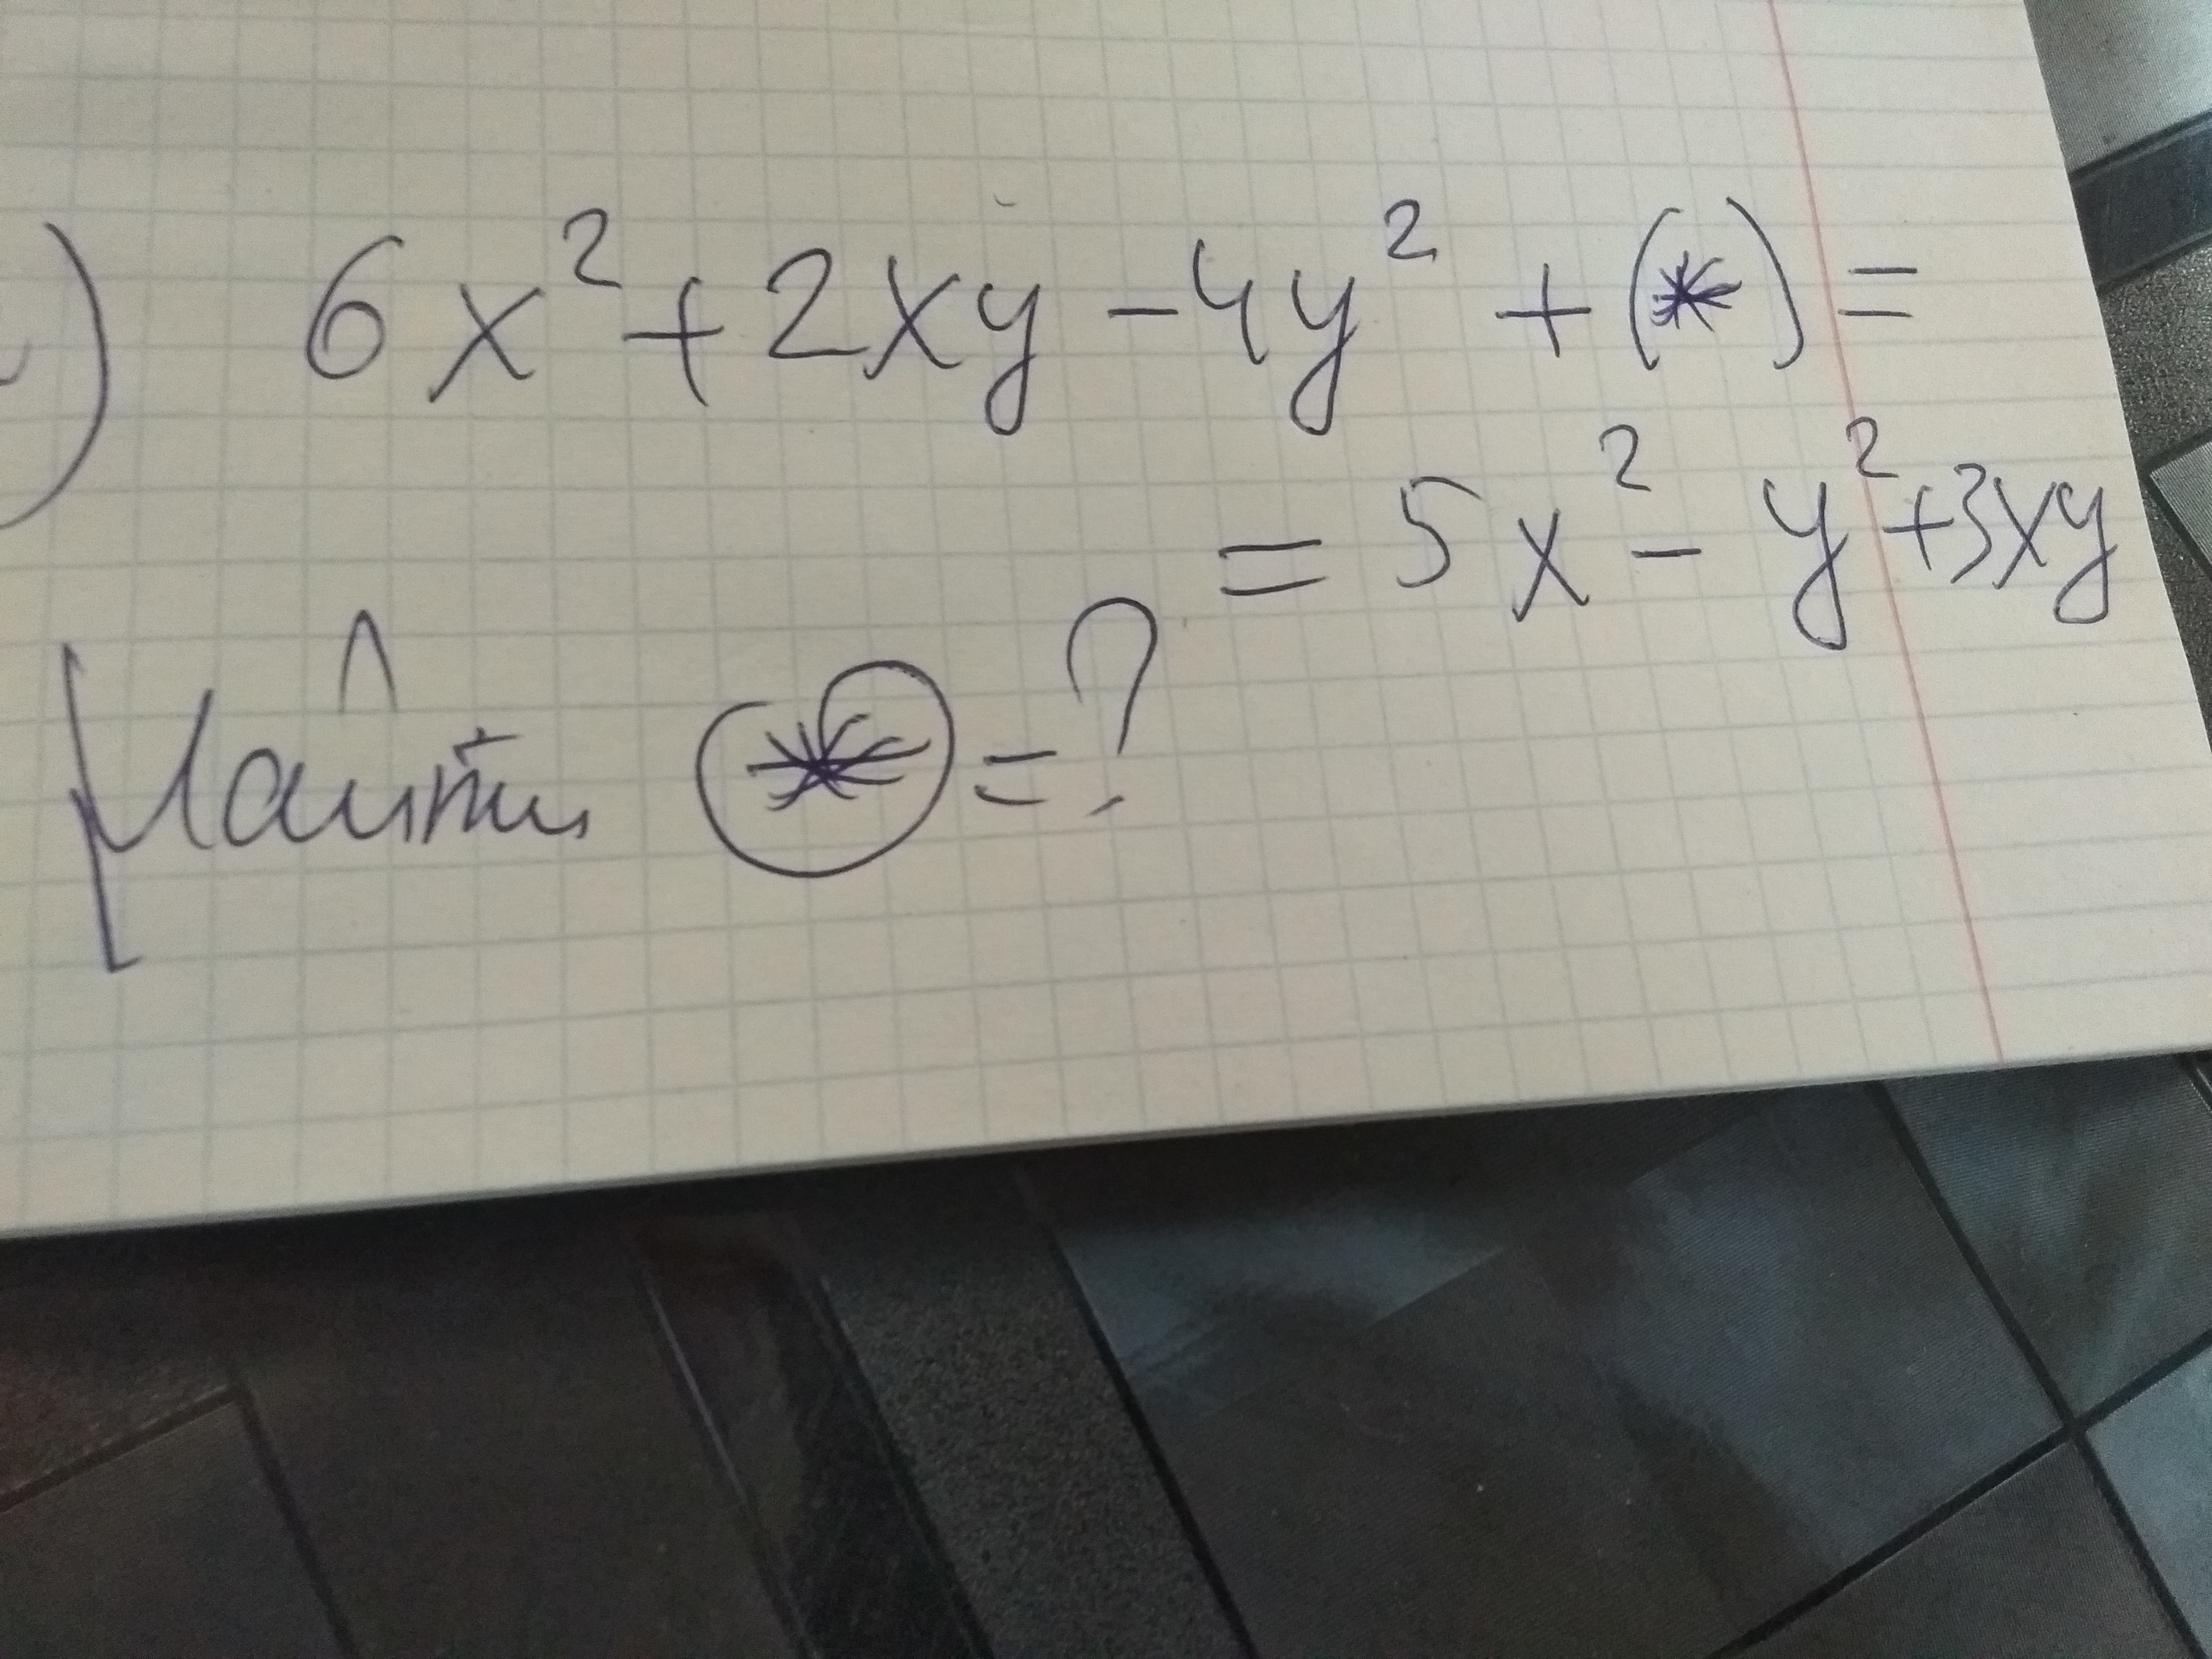 ) 6x² + 2xy - 4y² + (*) =
= 5x² - y² + 3xy
Найти (*) = ?